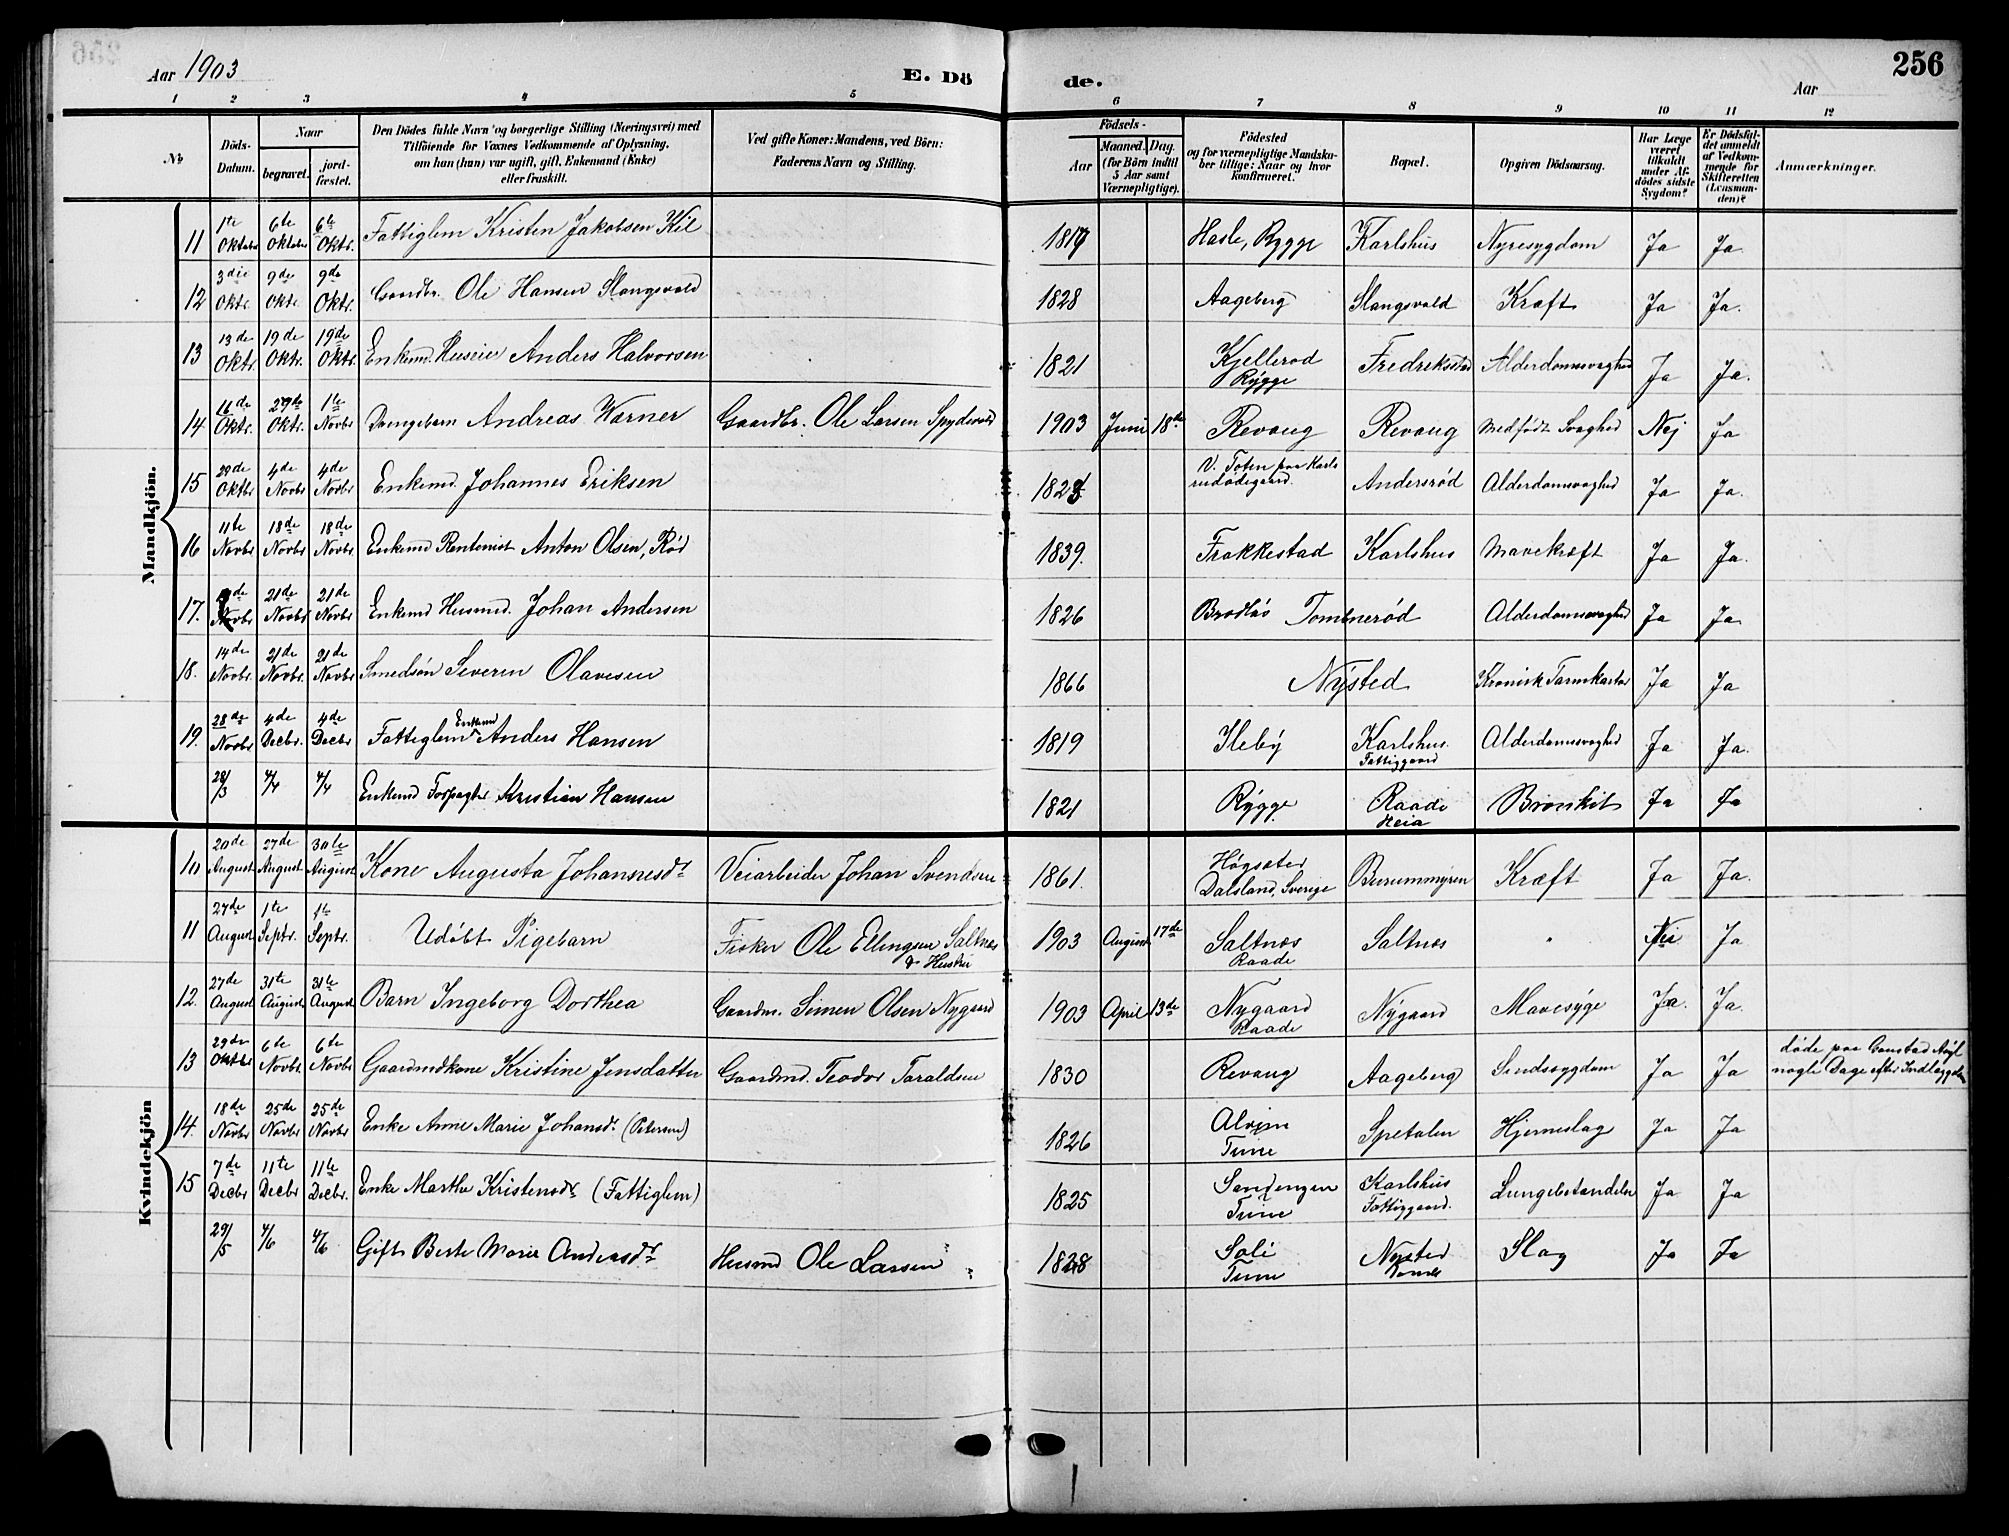 Aar 1903 E. Dö de. Aar 256
1 2 3 4 5 6 7 8 9 10 11 12
No
Döds-Datum.
Naar
begravet.
jord-fæstet.
Den Dödes fulde Navn og borgerlige Stilling (Næringsvei) med
Tilföiende for Voxnes Vedkommende af Oplysning,
om han (hun) var ugift, gift, Enkemand (Enke)
eller fraskilt.
Ved gifte Koner: Mandens, ved Börn:
Faderens Navn og Stilling.
Födsels-
Aar
Maaned. Dag.
(for Börn indtil
5 Aar samt
Værnepligtige).
Födested
og for værnepligtige Mandska-
ber tillige: Naar og hvor
Konfirmeret.
Bopæl.
Opgiven Dödsaarsag.
Har Læge
været
tilkaldt
under Af-
dödes sidste
Sygdom?
Er Dödsfal-
det anmeldt
af Vedkom-
mende for
Skifteretten
(Lensman-
den)?
Anmærkninger.
Mandkjön.
11 1te Oktober 6te Oktober 6te Oktr. Fattiglem Kristen Jakobsen Kil 1817 Hasle, Rygge Karlshus Nyresygdom Ja Ja
12 3die Oktr. 9de Okt. 9de Oktr. Gaardbr. Ole Hansen Slangsvold 1828 Aageberg Slangsvold Kræft Ja Ja.
13 13de Oktr. 19de Oktr. 19de Oktr. Enkemd. Huseier Anders Halvorsen 1821 Kjellerød Rygge Fredriksstad Alderdomssvaghed Ja Ja.
14 16de Oktr. 29de Oktr. 1te Novbr Drengebarn Andreas Warner Gaardbr. Ole Larsen Spydevold 1903 Juni 18de Revaug Revaug Medfødt Svaghed Nej Ja
15 29de Oktbr 4de Novbr 4de Novbr Enkemd. Johannes Eriksen V. Toten paa Karls rudødegaard. Andersrød Alderdomssvaghed Ja Ja.
16 11te Novbr 18de Novbr. 18de Novbr. Enkemd Rentenist Anton Olsen, Rød 1839. Trøkkestad Karlshus Mavekræft Ja Ja.
17. Novbr 21de Novbr 21de Novbr Enkemd Husmd. Johan Andersen 1826 Brødløs Tombnerød Alderdomssvaghed Ja Ja
18. 14de Novbr. 21de Novbr. 21de Novbr Smedsøn Severin Olavesen 1866 Nysted Kronisk Tarmkatar Ja Ja
19. 28de Novbr 4de Decbr. 4de Decbr Fattiglem Enkemd Anders Hansen 1819 Heby Karlshus. Fattiggaard Alderdomssvaghed Ja Ja.
28/3 4/4 4/4 Enkemd Forpagter Kristian Hansen 1821 Rygge Raade Heia Bronkit Ja Ja
Kvindekjön
10 20de August 27de August 30te August Kone Augusta Johannesdr Veiarbeider Johan Svendsen 1861. Høgsæter Dalsland, Sverige Burummyren Kræft Ja Ja.
11 27de August 1te Septr. 1te Septr. Udøbt Pigebarn Fisker Ole Ellingsen Saltnes & Hustru 1903 August 17de Saltnes Raade Saltnes " Nei Ja
12. 27de August 31te August 31te August Barn Ingeborg Dorthea Gaardm. Simen Olsen Nygaard 1903 April 13de Nygaard Raade Nygaard Mavesyge Ja. Ja.
13 29de Oktbr 6te Novbr. 6te Novbr Gaardmdkone Kristine Jensdatter Gaardmd. Teodor Taraldsen 1830 Revaug Aageberg Sindssygdom Ja Ja døde paa Gaustad Asyl nogle Dage efter Indlæggelsen
14. 18de Novbr 25de Novbr 25de Novbr Enke Anne Marie Johansdr (Petersen) 1826 Alvim Tune Spetalen Hjerneslag Ja Ja
15 7de Decbr 11te Decbr 11te Decbr. Enke Marthe Kristensdr (Fattiglem) 1825 Sandengen Tune Karlshus Fattiggaard. Lungebetændelse Ja Ja
29/5 4/6 4/6 Gift Berte Marie Andersdr Husmd Ole Larsen Soli Tune Nysted Tomb Slag Ja Ja